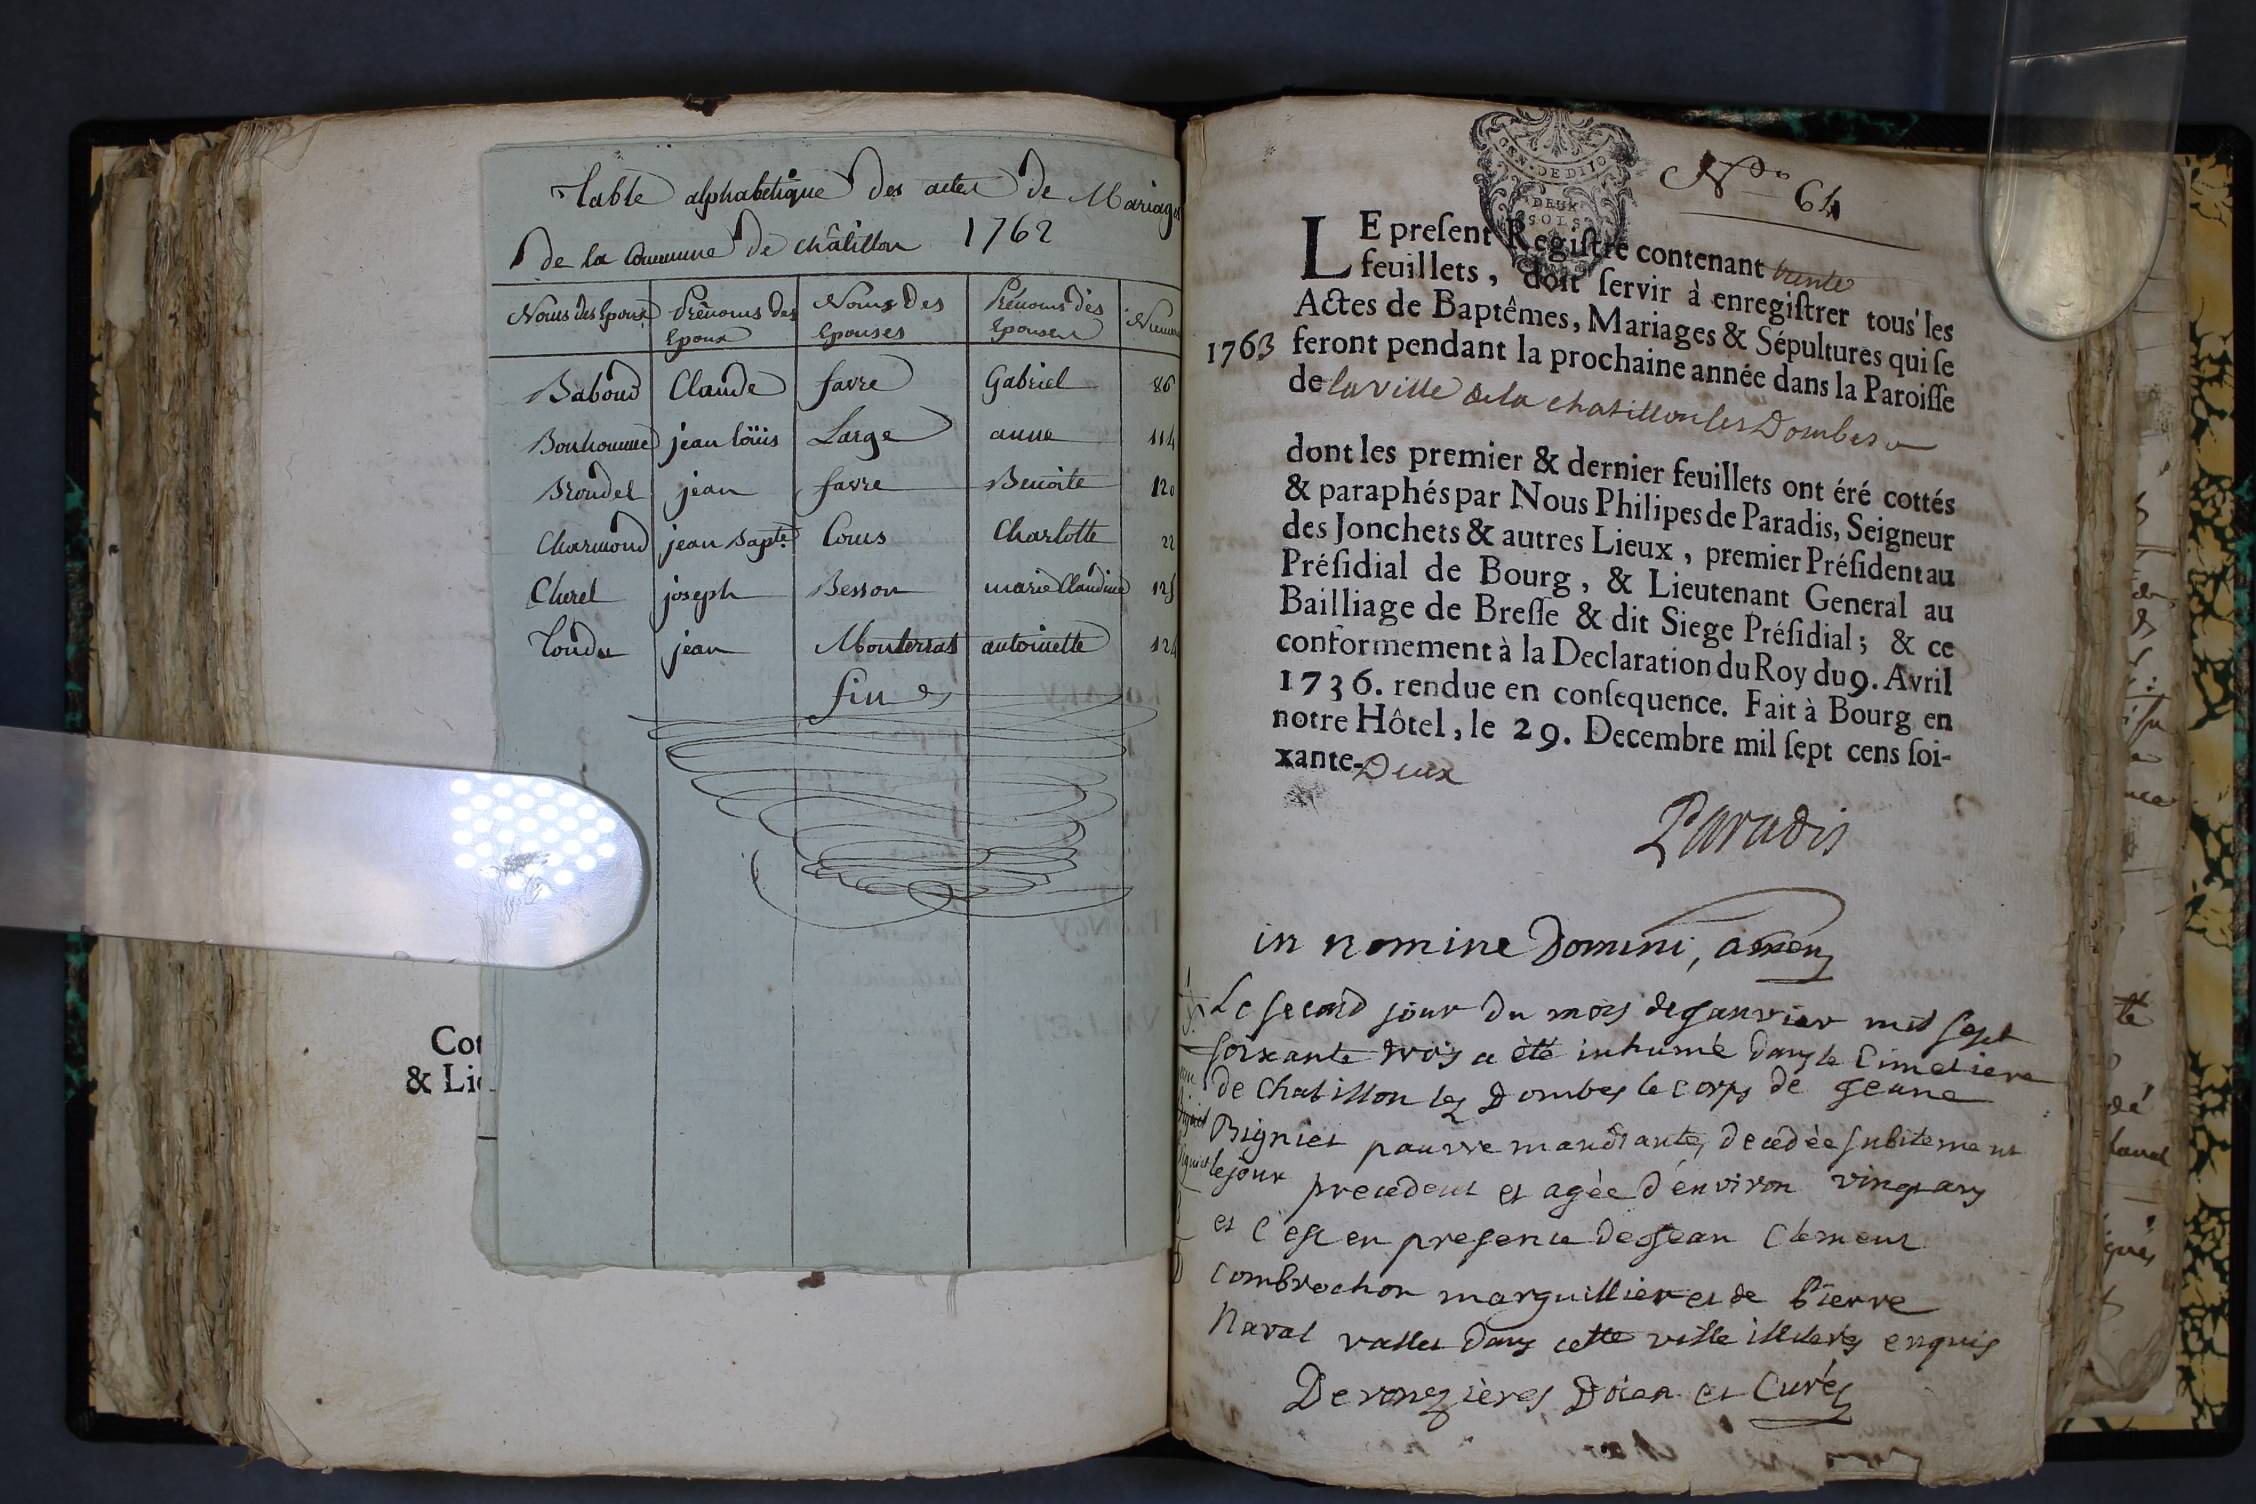 Table alphabétique des actes de Mariages
de la Commune de châtillon 1762
Noms des Epoux Prénoms des Epoux Noms des Epouses Prénoms des Epouses
Baboud Claude favre Gabriel 86
Bonhomme jean loüis Large anne 114
Brondel jean favre Benoite 120
Charmond jean Bapte. Coms Charlotte 22
Churel joseph Besson marie Claudine
Tondu jean Monterrat antoinette 124
fin
Cot
& Lie
GEN. DE DIJO
DEUX
SOLS
No. 64
LE preſent Regiſtre contenant trente
feuillets, doit ſervir à enregiſtrer tous les
Actes de Baptêmes, Mariages & Sépultures qui ſe
1763 feront pendant la prochaine année dans la Paroiſſe
de la ville de la chatillon les Dombes
dont les premier & dernier feuillets ont éré cottés
& paraphés par Nous Philipes de Paradis, Seigneur
des Jonchets & autres Lieux, premier Préſident au
Préſidial de Bourg, & Lieutenant General au
Bailliage de Breſſe & dit Siege Préſidial; & ce
conformement à la Declaration du Roy du 9. Avril
1736. rendue en conſequence. Fait à Bourg en
notre Hôtel, le 29. Decembre mil ſept cens ſoi-
xante-Deux
Paradis
in nomine Domini, amen
Le second jour du mois de janvier mil sept
soixante trois a été inhumé dans le Cimetiere
de Chatillon les Dombes le corps de jeane
Brigniet pauvre mandiante, decedée subitement
le jour precedent et agée d'environ vingt ans
et c'est en presence de jean Clement
Combrochon marguillier et de Pierre
Naval vallet dans cette ville illiterés enquis
Deronzières Doien et Curé